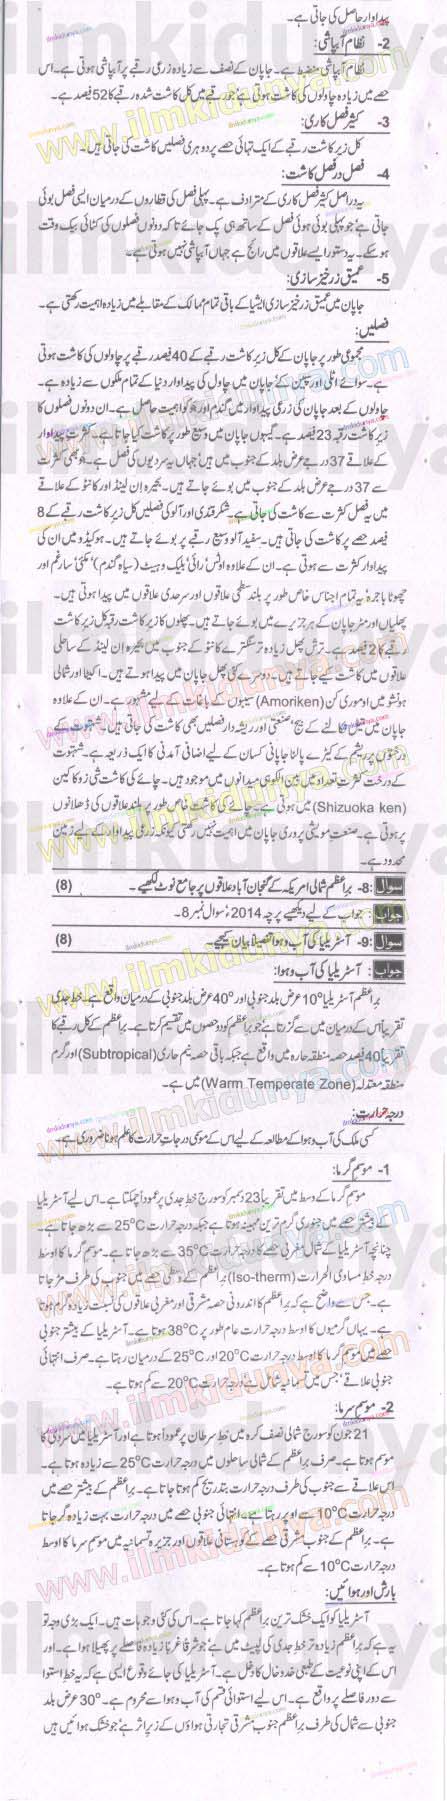 پیداوار حاصل کی جاتی ہے۔
2- نظام آبپاشی:
نظام آبپاشی منضبط ہے۔ جاپان کے نصف سے زیادہ زرعی رقبے پر آبپاشی ہوتی ہے۔ اس
حصے میں زیادہ چاولوں کی کاشت ہوتی ہے جو رقبے میں کل کاشت شدہ رقبے کا 52 فیصد ہے۔
3- کثیر فصل کاری:
کل زیر کاشت رقبے کے ایک تہائی حصے پر دوہری فصلیں کاشت کی جاتی ہیں۔
4- فصل در فصل کاشت:
یہ دراصل کثیر فصل کاری کے مترادف ہے۔ پہلی فصل کی قطاروں کے درمیان ایسی فصل بوئی
جاتی ہے جو پہلی بوئی ہوئی فصل کے ساتھ ہی پک جائے تاکہ دونوں فصلوں کی کٹائی بیک وقت
ہو سکے۔ یہ دستور ایسے علاقوں میں رائج ہے جہاں آبپاشی نہیں ہوتی ہے۔
5- عمیق زرخیز سازی:
جاپان میں عمیق زرخیز سازی ایشیا کے باقی تمام ممالک کے مقابلے میں زیادہ اہمیت رکھتی ہے۔
فصلیں:
مجموعی طور پر جاپان کے کل زیر کاشت رقبے کے 40 فیصد رقبے پر چاولوں کی کاشت ہوتی
ہے۔ سوائے اٹلی اور سپین کے جاپان میں چاول کی پیداوار دنیا کے تمام ملکوں سے زیادہ ہے۔
چاولوں کے بعد جاپان کی زرعی پیداوار میں گندم اور جو کو اہمیت حاصل ہے۔ ان دونوں فصلوں کا
زیر کاشت رقبہ 23 فیصد ہے۔ گیہوں جاپان میں وسیع طور پر کاشت کیا جاتا ہے۔ کثرت پیداوار
کے علاقے 37 درجے عرض بلد کے جنوب میں ہیں جہاں یہ سردیوں کی فصل ہے۔ جو بھی کثرت
سے 37 درجے عرض بلد کے جنوب میں بوئے جاتے ہیں۔ بحیرہ ان لینڈ اور کانٹو کے علاقے
میں یہ فصل کثرت سے کاشت کی جاتی ہے۔ شکر قندی اور آلو کی فصلیں کل زیر کاشت رقبے کے 8
فیصد حصے پر کاشت کی جاتی ہیں۔ سفید آلو وسیع رقبے پر بوئے جاتے ہیں۔ ہوکیڈو میں ان کی
پیداوار کثرت سے ہوتی ہے۔ ان کے علاوہ اوٹس، رائی، بلیک وہیٹ (سیاہ گندم)، مکئی، سارغم اور
چھوٹا باجرہ، یہ تمام اجناس خاص طور پر بلند سطحی علاقوں اور سرحدی علاقوں میں پیدا ہوتی ہیں۔
پھلیاں اور مٹر جاپان کے ہر جزیرے میں بوئے جاتے ہیں۔ پھلوں کا زیر کاشت رقبہ کل زیر کاشت
رقبے کا 2 فیصد ہے۔ ترش پھل زیادہ تر سنگترے کانٹو کے جنوب میں بحیرہ ان لینڈ کے ساحلی
علاقوں میں کاشت کیے جاتے ہیں۔ دوسرے کئی پھل جاپان میں پیدا ہوتے ہیں۔ اکیٹا اور شمالی
ہونشو میں اوموری کن (Amoriken) سیبوں کے باغات کے لیے مشہور ہے۔ ان کے علاوہ
جاپان میں تیل نکالنے کے بیج، صنعتی اور ریشہ دار فصلیں بھی کاشت کی جاتی ہیں۔ شہتوت کے
درختوں پر ریشم کے کیڑے پالنا جاپانی کسان کے لیے اضافی آمدنی کا ایک ذریعہ ہے۔ شہتوت
کے درخت کثرت تعداد میں بین الکوہی میدانوں میں موجود ہیں۔ چائے کی کاشت شی زوکا کین
(Shizuoka ken) میں ہوتی ہے۔ چائے کی کاشت خاص طور پر بلند علاقوں کی ڈھلانوں
پر ہوتی ہے۔ صنعت مویشی پروری جاپان میں اہمیت نہیں رکھتی کیونکہ زرعی پیداوار کے لیے زمین
محدود ہے۔
سوال 8:- براعظم شمالی امریکہ کے گنجان آباد علاقوں پر جامع نوٹ لکھیے۔ (8)
جواب: جواب کے لیے دیکھیے پرچہ 2014ء سوال نمبر 8۔
سوال 9:- آسٹریلیا کی آب و ہوا تفصیلاً بیان کیجیے۔ (8)
جواب: آسٹریلیا کی آب و ہوا:
براعظم آسٹریلیا 10° عرض بلد جنوبی اور 40° عرض بلد جنوبی کے درمیان واقع ہے۔ خط جدی
تقریباً اس کے درمیان میں سے گزرتا ہے جو براعظم کو دو حصوں میں تقسیم کرتا ہے۔ براعظم کے کل رقبے کا
تقریباً 40 فیصد حصہ منطقہ حارہ میں واقع ہے جبکہ باقی حصہ نیم حاری (Subtropical) اور گرم
منطقہ معتدلہ (Warm Temperate Zone) میں ہے۔
درجہ حرارت:
کسی ملک کی آب و ہوا کے مطالعہ کے لیے اس کے موسمی درجات حرارت کا علم ہونا ضروری ہے۔
1- موسم گرما:
موسم گرما کے وسط میں تقریباً 23 دسمبر کو سورج خط جدی پر عموداً چمکتا ہے۔ اس لیے آسٹریلیا
کے بیشتر حصے میں جنوری گرم ترین مہینہ ہوتا ہے جبکہ درجہ حرارت 25°C سے بڑھ جاتا ہے۔
چنانچہ آسٹریلیا کے شمال مغربی حصے کا درجہ حرارت 35°C سے بڑھ جاتا ہے۔ موسم گرما کا اوسط
درجہ خط مساوی الحرارت (Iso-therm) براعظم کے وسطی حصے میں جنوب کی طرف مڑ جاتا
ہے۔ جس سے واضح ہے کہ براعظم کا اندرونی حصہ مشرقی اور مغربی علاقوں کی نسبت زیادہ گرم ہوتا
ہے۔ یہاں گرمیوں کا اوسط درجہ حرارت عام طور پر 38°C ہوتا ہے۔ آسٹریلیا کے بیشتر جنوبی
حصے میں موسم گرما کا اوسط درجہ حرارت 20°C اور 25°C کے درمیان رہتا ہے۔ صرف انتہائی
جنوبی علاقے جس میں تسمانیہ شامل ہے درجہ حرارت 20°C سے کم ہوتا ہے۔
2- موسم سرما:
21 جون کو سورج شمالی نصف کرہ میں خط سرطان پر عموداً ہوتا ہے اور آسٹریلیا میں سردی کا
موسم ہوتا ہے۔ صرف براعظم کے شمالی ساحلوں میں درجہ حرارت 25°C سے زیادہ ہوتا ہے۔
اس علاقے سے جنوب کی طرف درجہ حرارت بتدریج کم ہوتا جاتا ہے۔ براعظم کے بیشتر حصے میں
درجہ حرارت 10°C سے اوپر رہتا ہے۔ انتہائی جنوبی حصے میں درجہ حرارت بہت زیادہ گر جاتا
ہے۔ براعظم کے جنوب مشرقی حصے کے کوہستانی علاقوں اور جزیرہ تسمانیہ میں موسم سرما کا اوسط
درجہ حرارت 10°C سے کم ہوتا ہے۔
بارش اور ہوائیں:
آسٹریلیا کو ایک خشک ترین براعظم کہا جاتا ہے۔ اس کی کئی وجوہات ہیں۔ ایک بڑی وجہ تو
یہ ہے کہ براعظم زیادہ تر خط جدی کی لپیٹ میں ہے جو شرقاً غرباً زیادہ فاصلے پر پھیلا ہوا ہے۔ اور
اس کے اپنی نوعیت کے طبعی خدوخال کا دخل ہے۔ آسٹریلیا کی جائے وقوع ایسی ہے کہ یہ خط استوا
سے دور فاصلے پر واقع ہے۔ اس لیے استوائی قسم کی آب و ہوا سے محروم ہے۔ 30° عرض بلد
جنوبی سے شمال کی طرف براعظم جنوب مشرقی تجارتی ہواؤں کے زیر اثر ہے جو خشک ہوائیں ہیں
www.ilmkidunya.com